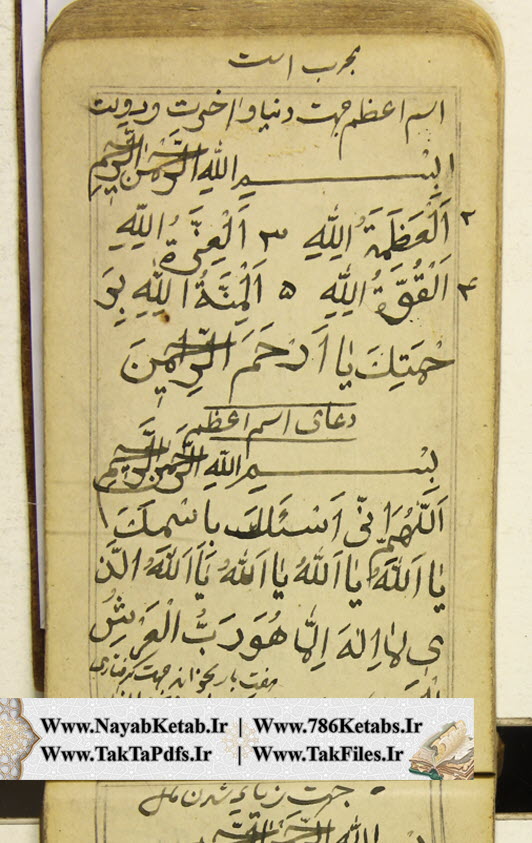 مجرب است
اسم اعظم جهت دنیا و اخرت و دولت
بِسْمِ اللهِ الرَّحْمنِ الرَّحِیمِ
۲ اَلْعَظَمَةُ لِلّٰهِ ۳ اَلْعِزَّةُ لِلّٰهِ
۴ اَلْقُوَّةُ لِلّٰهِ ۵ اَلْمِنَّةُ لِلّٰهِ بِرَ
حْمَتِكَ یٰا اَرْحَمَ الرّٰاحِمِینَ
دعای اسم اعظم
بِسْمِ اللهِ الرَّحْمنِ الرَّحِیمِ
اَللّٰهُمَّ اِنّٖی اَسْئَلُكَ بِاسْمِكَ
یٰا اَللّٰهُ یٰا اَللّٰهُ یٰا اَللّٰهُ یٰا اَللّٰهُ الَّذ
ی لٰا اِلٰهَ اِلّٰا هُوَ رَبُّ الْعَرْشِ
هفت بار بخواند جهت گرفتاری
Www.NayabKetab.Ir | Www.786Ketabs.Ir
Www.TakTaPdfs.Ir | Www.TakFiles.Ir
جهت زیاد شدن مال